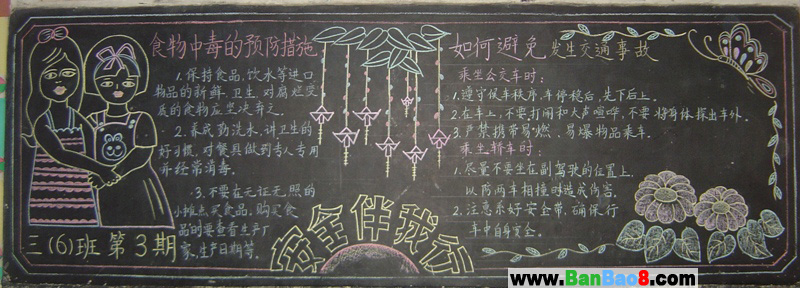 食物中毒的预防措施
1.保持食品、饮水等进口
物品的新鲜、卫生,对腐烂变
质的食物应坚决弃之。
2.养成勤洗水、讲卫生的
好习惯,对餐具做到专人专用
并经常消毒。
3.不要在无证无照的
小摊点买食品,购买食
品时要查看生产厂
家、生产日期等。
三(6)班 第3期
安全伴我行
如何避免发生交通事故
乘坐公交车时:
1.遵守候车秩序,车停稳后,先下后上。
2.在车上,不要打闹和大声喧哗,不要将身体探出车外。
3.严禁携带易燃、易爆物品乘车。
乘坐轿车时:
1.尽量不要坐在副驾驶的位置上,
以防两车相撞时造成伤害。
2.注意系好安全带,确保行
车中自身安全。
www.BanBao8.com